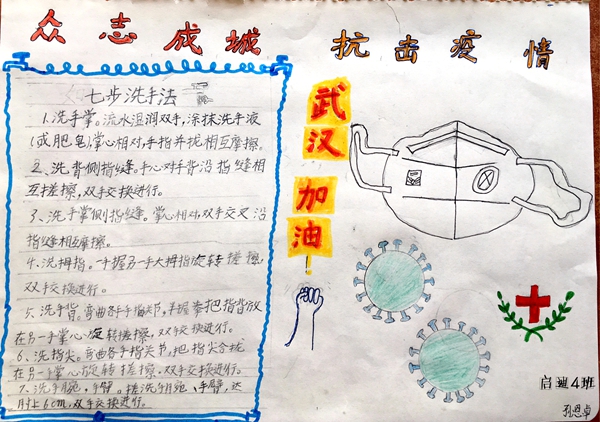 众志成城 抗击疫情
七步洗手法
1.洗手掌。流水湿润双手,涂抹洗手液
(或肥皂)掌心相对,手指并拢相互摩擦。
2、洗背侧指缝。手心对手背沿指缝相
互搓擦,双手交换进行。
3、洗手掌侧指缝。掌心相对,双手交叉沿
指缝相互摩擦。
4、洗拇指。一手握另一手大拇指旋转搓擦,
双手交换进行。
5、洗手背。弯曲各手指关节,半握拳把指背放
在另一手掌心旋转搓擦,双手交换进行。
6、洗指尖。弯曲各手指关节,把指尖合拢
在另一手掌心旋转搓擦,双手交换进行。
7、洗手腕、手臂。搓洗手腕、手臂,
肘上6cm,双手交换进行。
武汉
加油!
启迪4班
孔恩卓